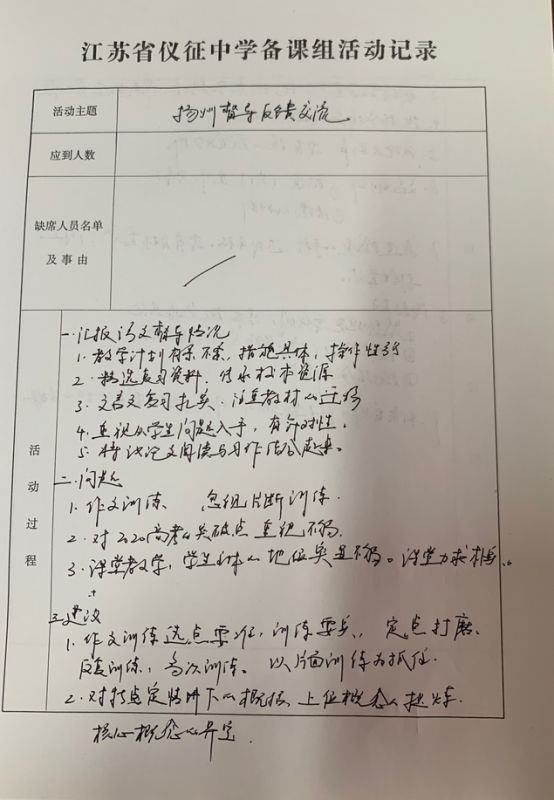 江苏省仪征中学备课组活动记录
活动主题
扬州督导反馈交流
应到人数
缺席人员名单
及事由
活动过程
一.汇报语文督导情况
1.教学计划有条不紊,措施具体,操作性强
2.精选复习资料,传承校本资源
3.文言文复习扎实,注重教材的迁移
4.重视从学生问题入手,有针对性。
5.将议论文阅读与写作结合起来。
二.问题
1.作文训练 忽视片断训练.
2.对2020高考的关破点重视不够.
3.课堂教学,学生主体的地位突显不够。课堂力求
三.建议
1.作文训练选点要准,训练要点,定点打磨、
反复训练,多次训练。以片面训练为抓住.
2.对特定情Here下的概括,上位概念的提炼.
核心概念的界定.